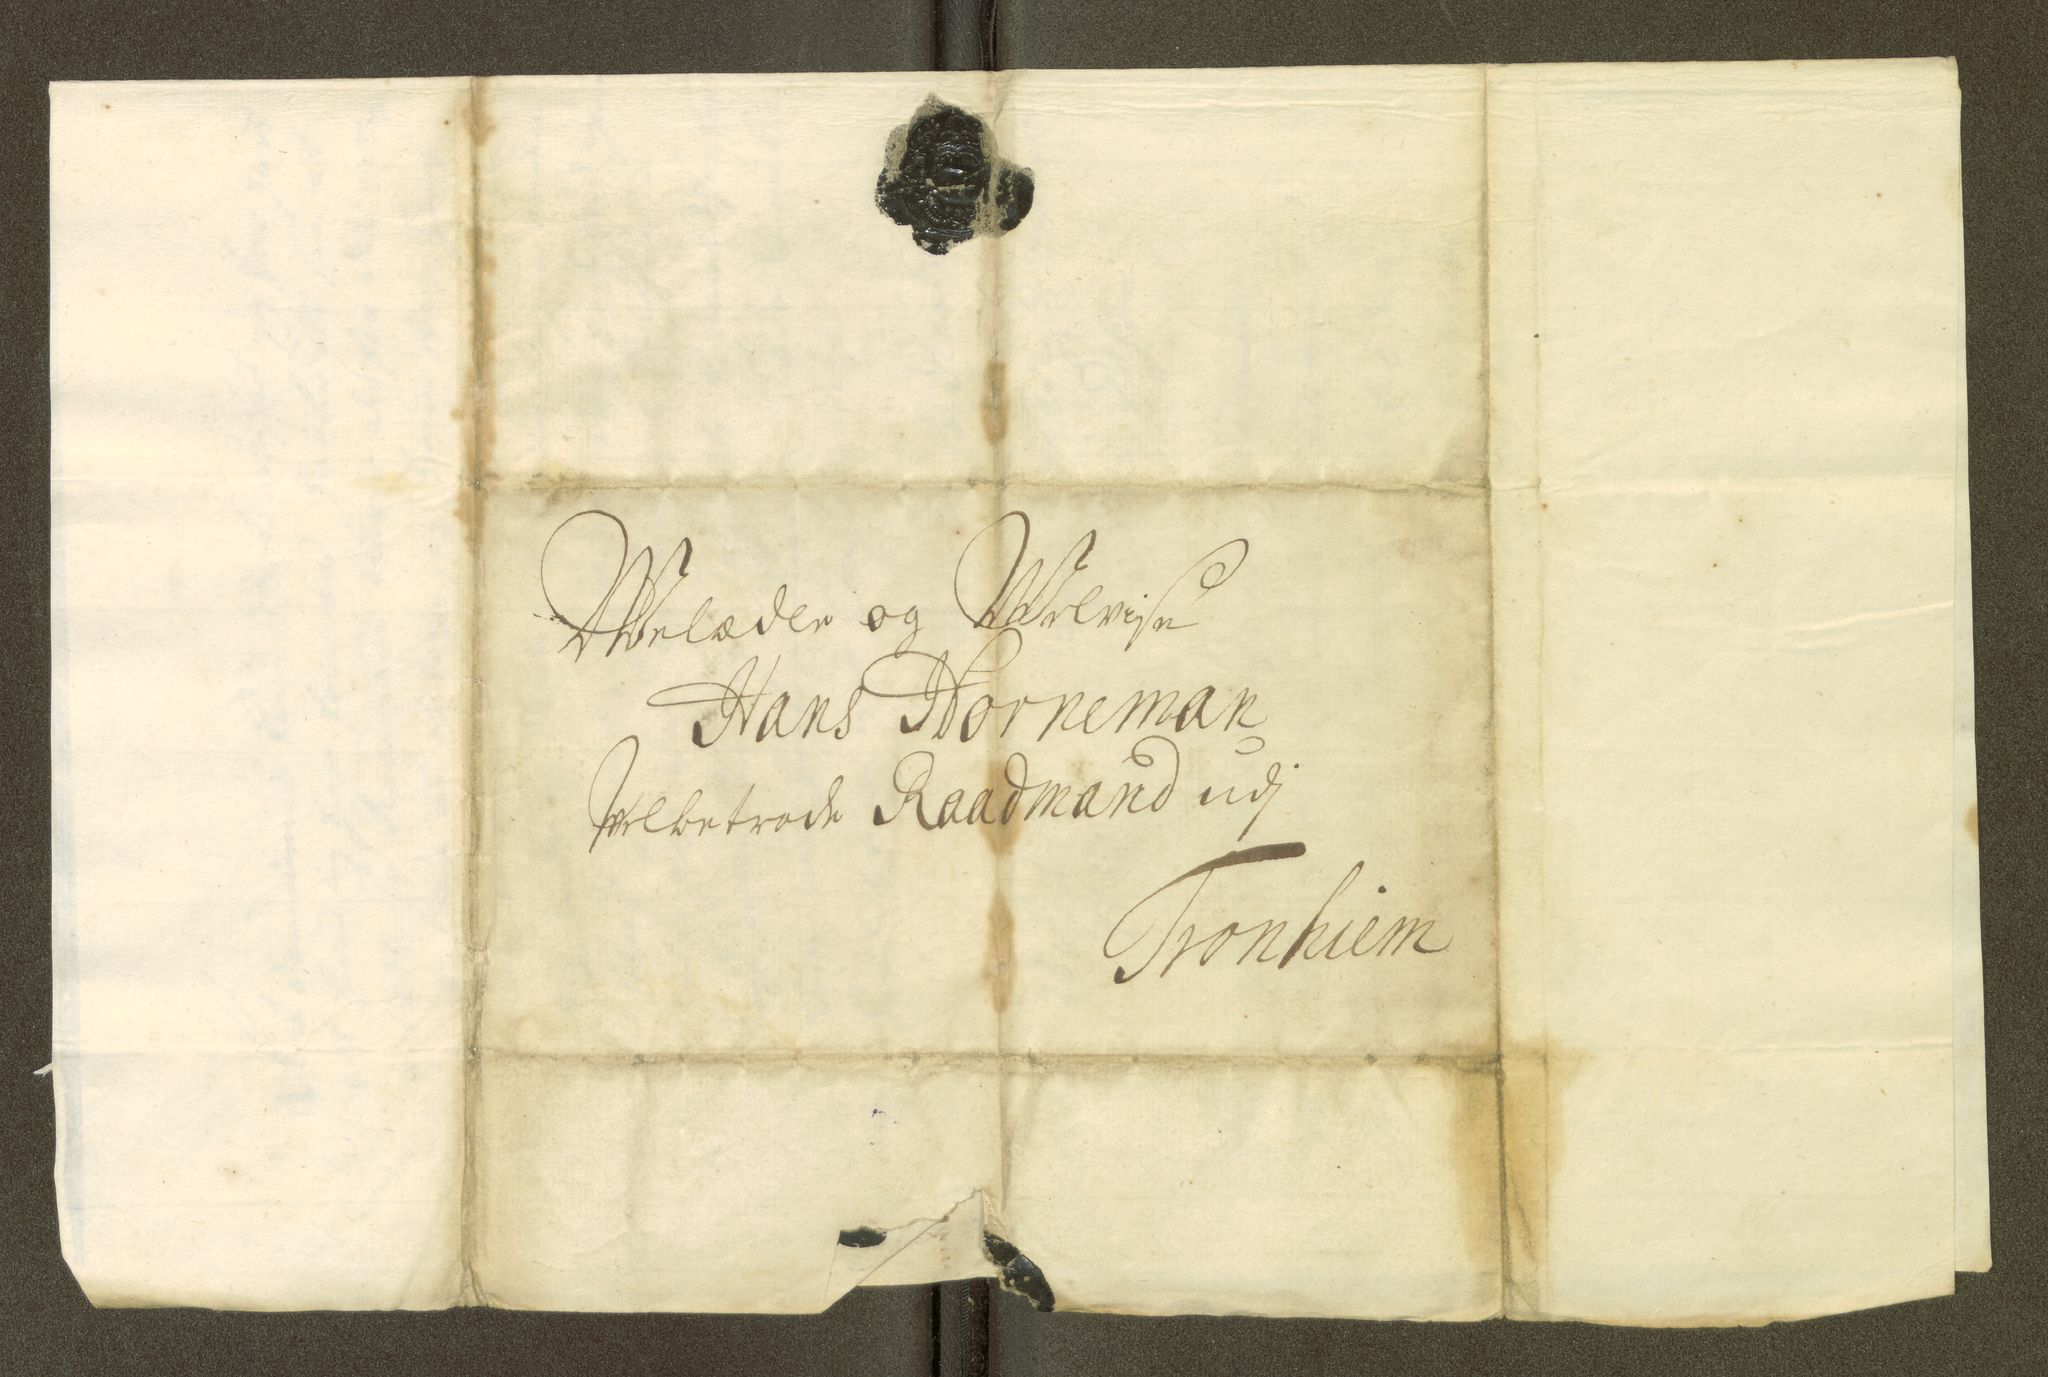 Welædle og Welvise
Hans Horneman
Velbetrode Raadmand udj
Tronhiem